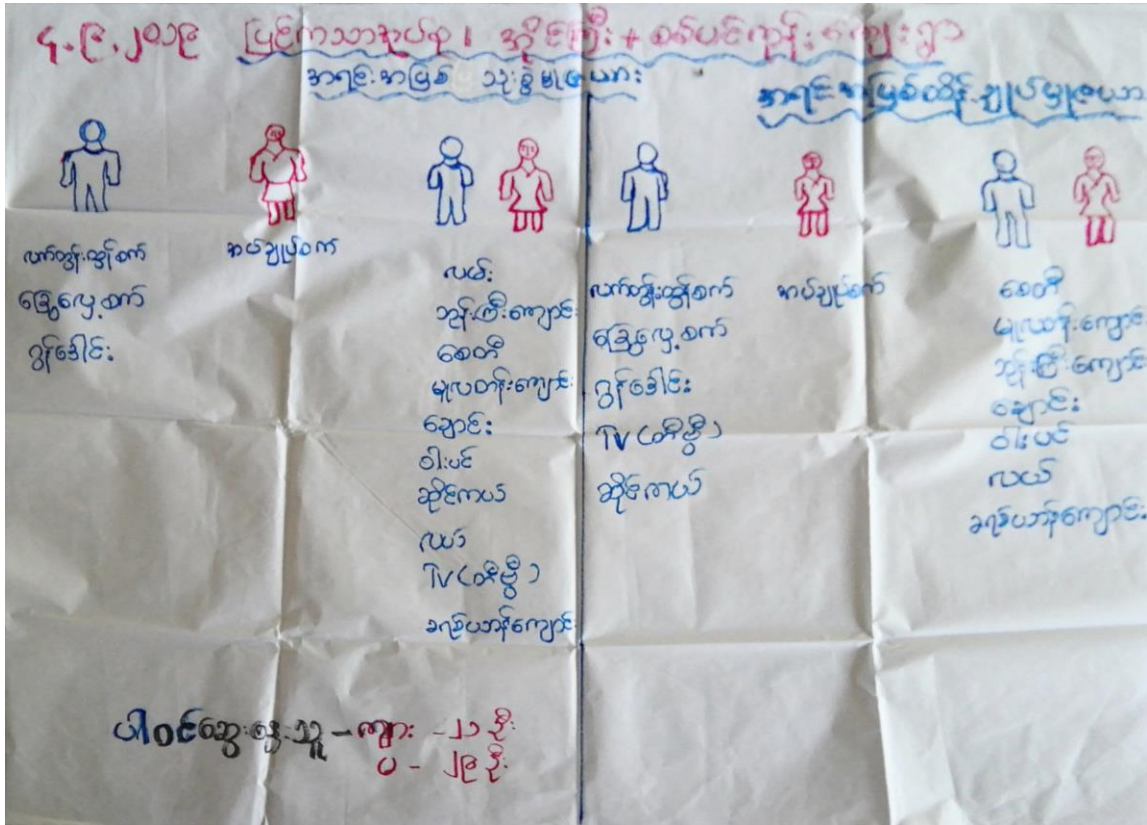 ၄.၉.၂၀၁၉ ပြင်ကသာအုပ်စု၊ အိုင်ကြီး + စစ်ပင်ကုန်းကျေးရွာ
အရင်းအမြစ် သုံးစွဲမှုဇယား
အရင်းအမြစ်ထိန်းချုပ်မှုဇယား
လက်တွန်းထွန်စက်
ခြွေလှေ့စက်
ဂွန်ဒေါင်း
အပ်ချုပ်စက်
လမ်း
ဘုန်းကြီးကျောင်း
စေတီ
မူလတန်းကျောင်း
ချောင်း
ဝါးပင်
ဆိုင်ကယ်
လယ်
TV (တီဗွီ)
ခရစ်ယာန်ကျောင်း
လက်တွန်းထွန်စက်
ခြွေလှေ့စက်
ဂွန်ဒေါင်း
TV (တီဗွီ)
ဆိုင်ကယ်
အပ်ချုပ်စက်
စေတီ
မူလတန်းကျောင်း
ဘုန်းကြီးကျောင်း
ချောင်း
ဝါးပင်
လယ်
ခရစ်ယာန်ကျောင်း
ပါဝင်ဆွေးနွေးသူ - ကျား - ၂၁ ဦး
မ - ၂၉ ဦး